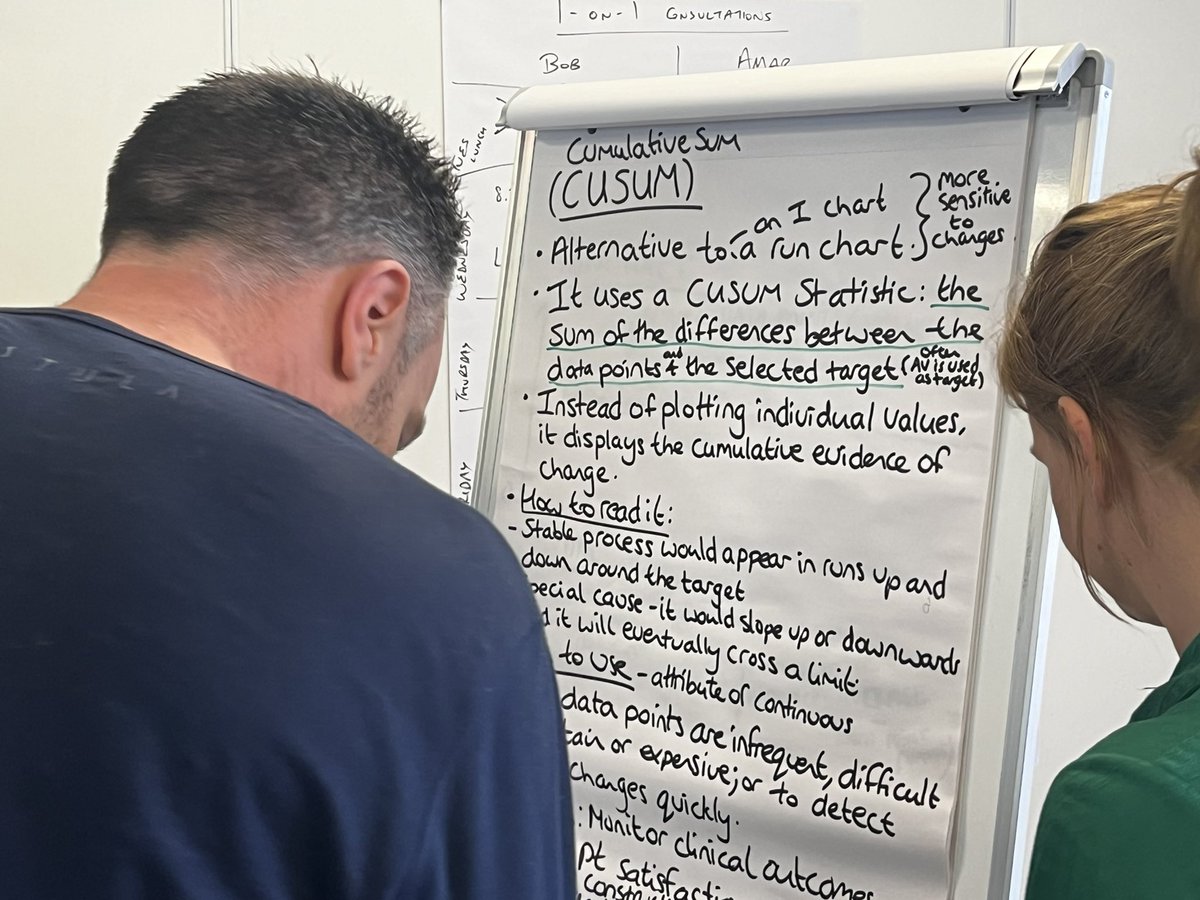 1-ON-1 CONSULTATIONS
BOB AMAR
TUES LUNCH
WEDNESDAY
THURSDAY
8.
Cumulative Sum
(CUSUM)
• Alternative to a run chart.
on I chart
more
sensitive
to
changes
• It uses a CUSUM Statistic: the
sum of the differences between the
data points and the selected target (often
AV is used
as target)
• Instead of plotting individual values,
it displays the cumulative evidence of
change.
• How to read it:
- Stable process would appear in runs up and
down around the target
pecial cause - it would slope up or downwards
d it will eventually cross a limit
to use - attribute of continuous
data points are infrequent, difficult
tain or expensive; or to detect
changes quickly.
: Monitor clinical outcomes
pt satisfacti